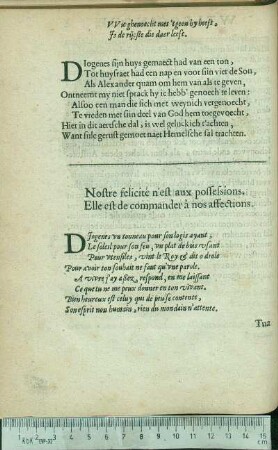 VVie ghenoecht met 't geen hy heeft,
Is de rijcste die daer leeft.
Diogenes sijn huys gemaect had van een ton,
Tot huysraet had een nap en voor sijn vier de Son,
Als Alexander quam om hem van als te geven,
Ontneemt my niet sprack hy ic hebb' genoech te leven:
Alsoo een man die sich met weynich vergenoecht,
Te vreden met sijn deel van God hem toegevoecht,
Hier in dit aertsche dal, is veel geluckich t'achten,
Want sijn gerust gemoet naer Hemelsche sal trachten.
Nostre felicité n'est aux possessions,
Elle est de commander à nos affections.
Diogene vn tonneau pour son logis ayant,
Le soleil pour son feu, vn plat de buis vsant
Pour vtensiles, vint le Roy & dit o drole
Pour avoir ton souhait ne faut qu'vne parole.
A vivre j'ay assez, respond, en me laissant
Ce que tu ne me peux donner en ton vivant.
Bien heureux est celuy qui de peu se contente,
Son esprit non humain, rien du mondain n'attente.